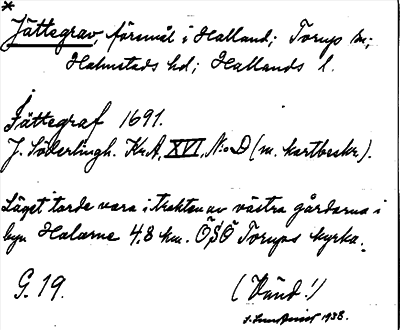 *
Jättegrav, förr mål i Halland; Torups sn;
Halmstads hd; Hallands l.
Jättegraf 1691.
J. Söderlingh. Kr.A, XVI, N:o D (m. kartbeskr.).
Läget torde vara i trakten av västra gårdarna i
byn Halarne 4.8 km. ÖSÖ Torups kyrka.
G. 19.
(Vänd!)
1938.